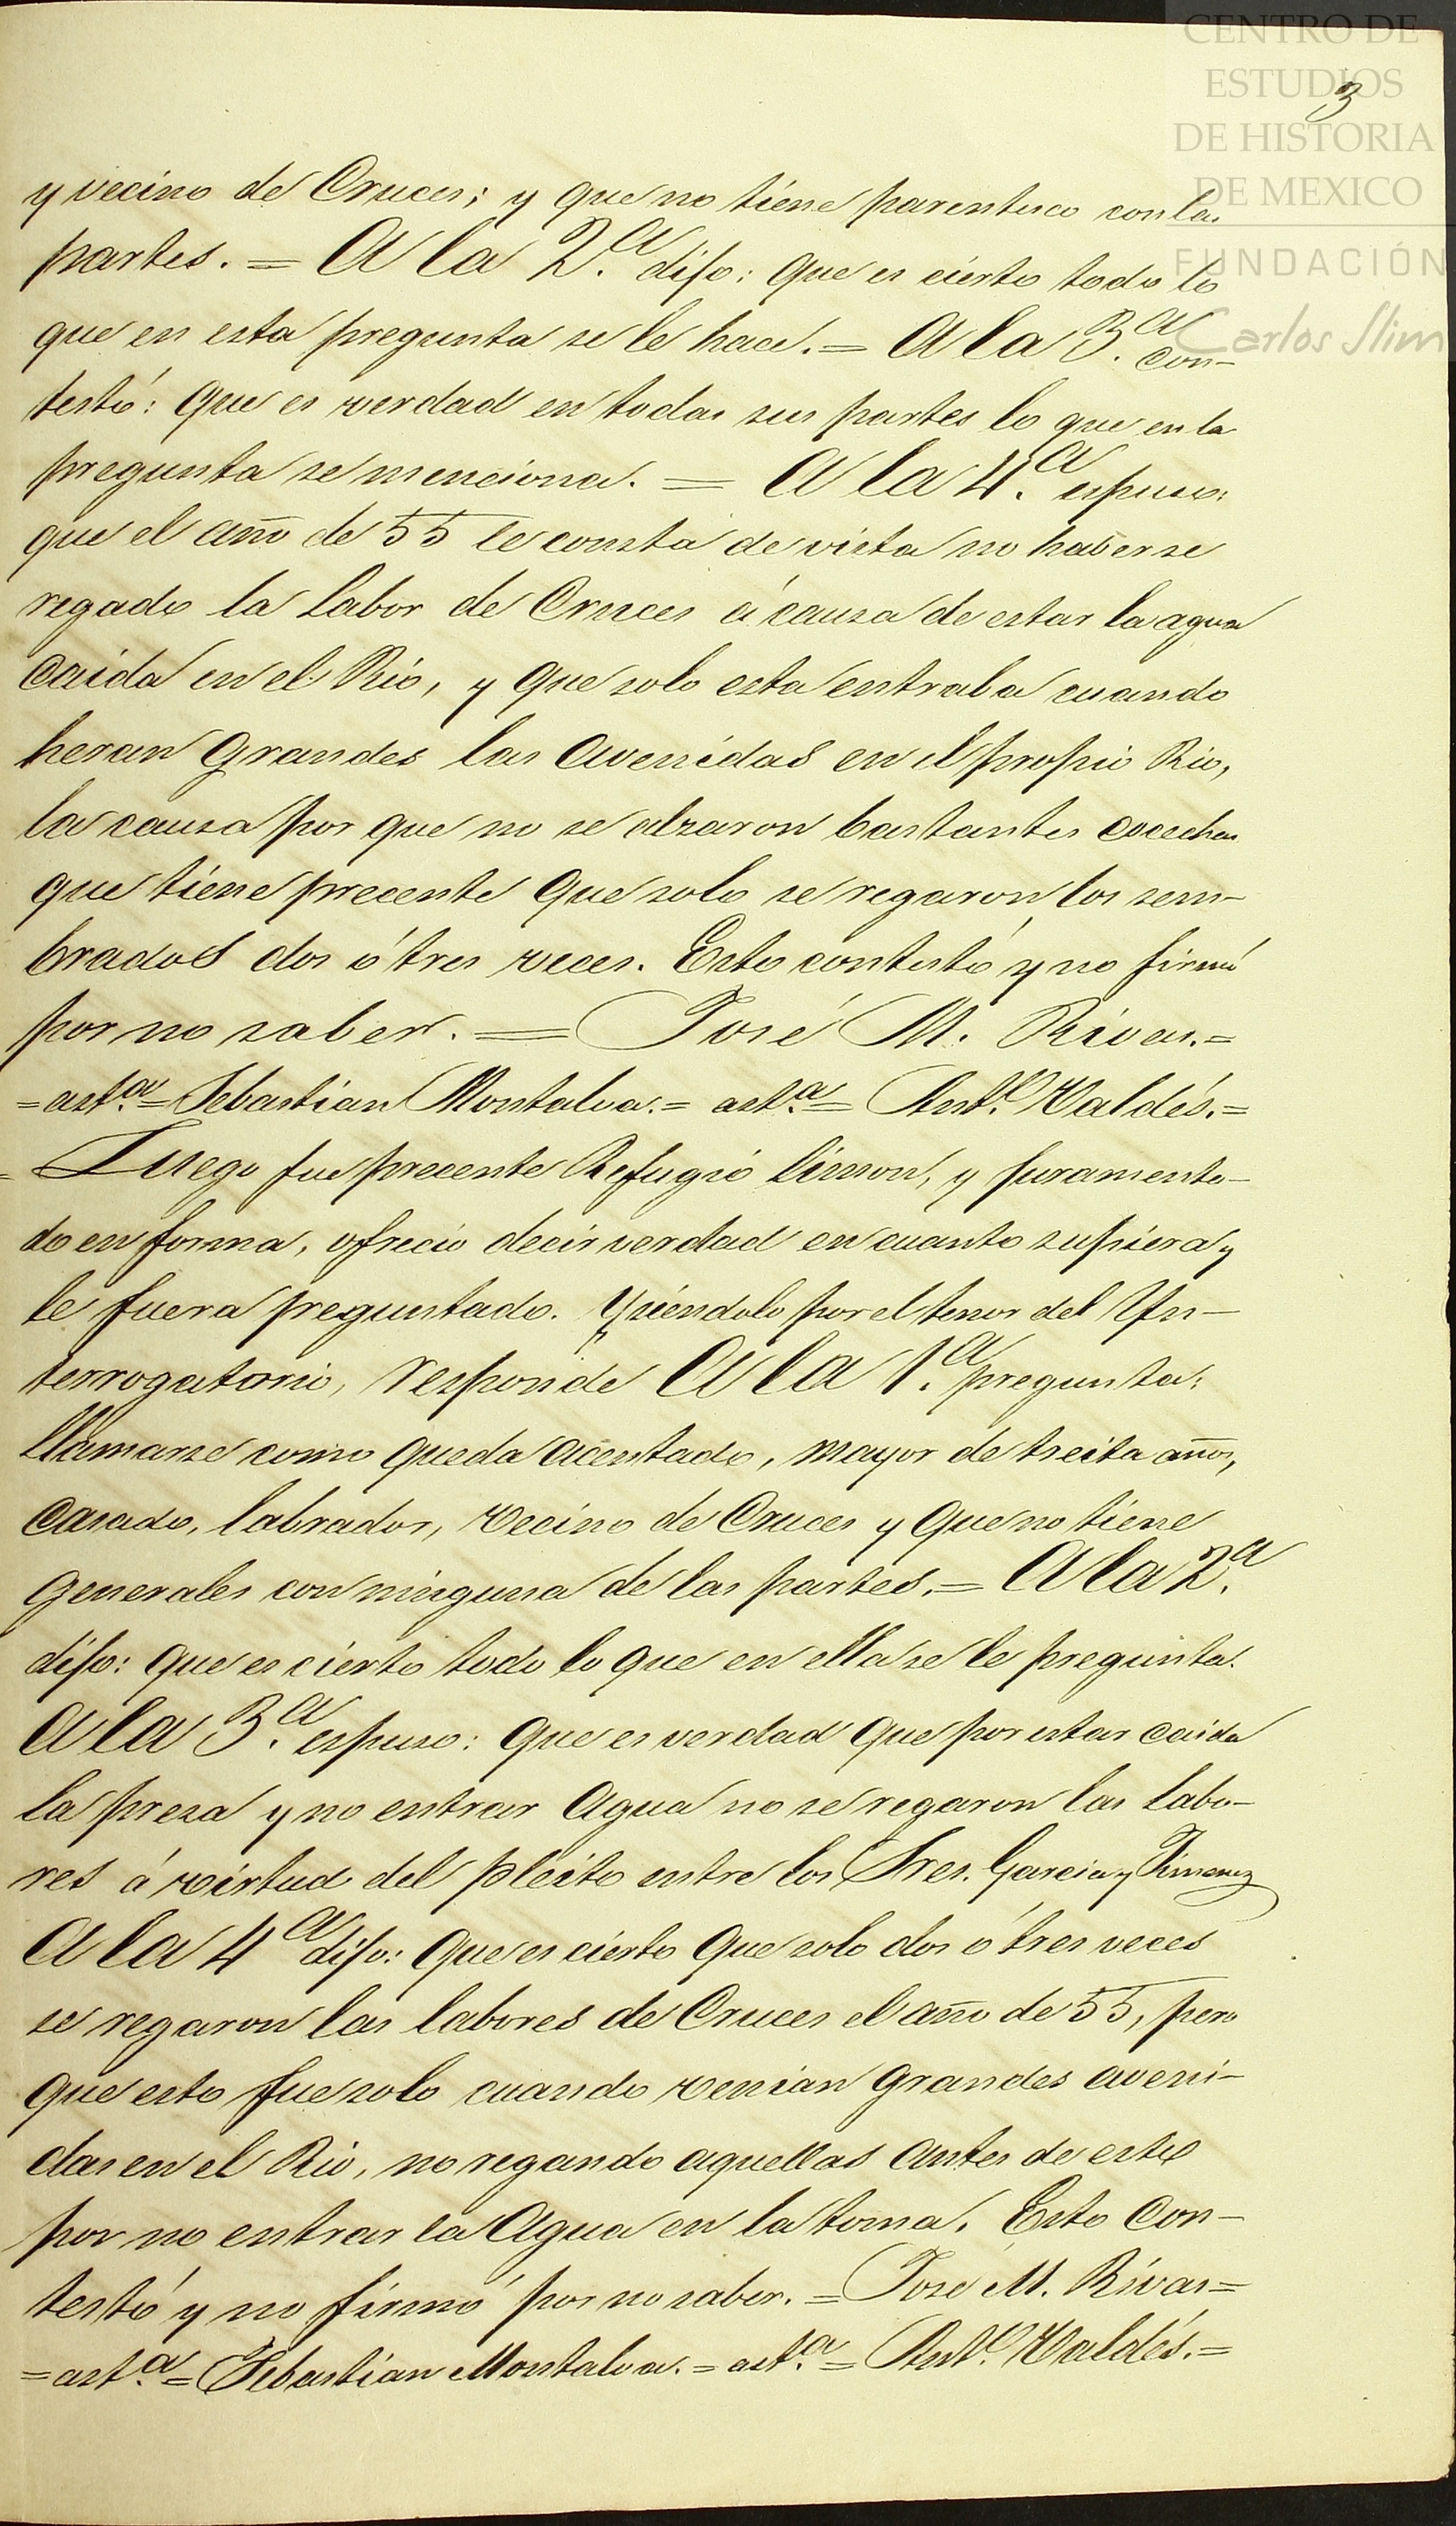 CENTRO DE
ESTUDIOS
DE HISTORIA
DE MEXICO
FUNDACIÓN
Carlos Slim
3
y vecino de Cruces; y que no tiene parentesco con las
partes. = A la 2.ª dijo: que es cierto todo lo
que en esta pregunta se le hace. = A la 3.ª con-
testó: que es verdad en todas sus partes lo que en la
pregunta se menciona. = A la 4.ª espuso:
que el año de 55 le consta de vista no haberse
regado la labor de Cruces á causa de estar la agua
caida en el Rio, y que solo esta entraba cuando
heran grandes las avenidas en el propio Rio,
la causa por que no se alzaron bastantes cocechas
que tiene precente que solo se regaron los sem-
brados dos ó tres veces. Esto contestó y no firmó
por no saber. = José M. Rivas. =
= ast.ª = Sebastian Montalva. = ast.ª = Ant.º Valdés. =
= Luego fue precente Refugio Limon, y juramenta-
do en forma, ofreció decir verdad en cuanto supiera y
le fuera preguntado. Y siéndolo por el tenor del Yn-
terrogatorio, responde A la 1.ª pregunta:
llamarse como queda acentado, mayor de treita años,
casado, labrador, vecino de Cruces y que no tiene
generales con ninguna de las partes. = A la 2.ª
dijo: que es cierto todo lo que en ella se le pregunta.
A la 3.ª espuso: que es verdad que por estar caida
la presa y no entrar agua no se regaron las labo-
res á virtud del pleito entre los Sres. Garcia y Jimenez
A la 4ª dijo: que es cierto que solo dos ó tres veces
se regaron las labores de Cruces el año de 55, pero
que esto fue solo cuando venian grandes aveni-
das en el Rio, no regando aquellas antes de esto
por no entrar la agua en la toma. Esto con-
testó y no firmó por no saber. = José M. Rivas =
= ast.ª = Sebastian Montalva. = ast.ª = Ant.º Valdés. =